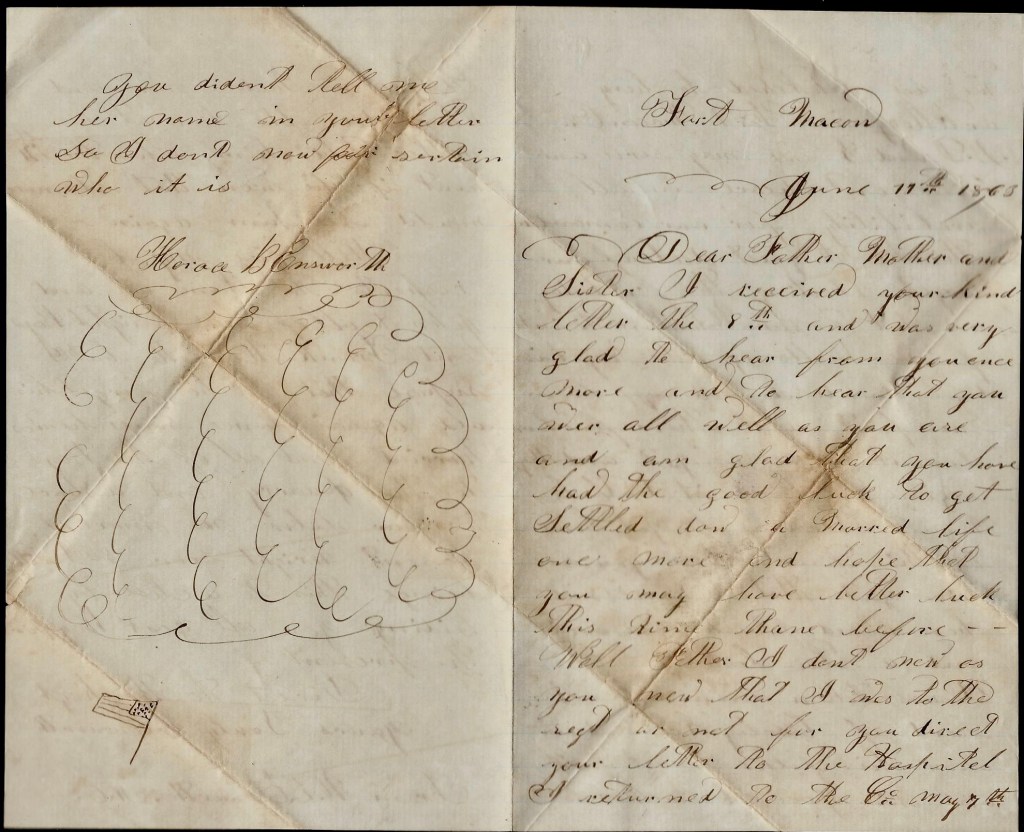 you dident tell me
her name in your letter
So I dont new sertain
who it is
Horace B Ensworth
Fort Macon
June 17th 186
Dear Father Mother and
Sister I received your kind
letter the 8th and was very
glad to hear from you once
more and to hear that you
wer all well as you are
and am glad that you have
had the good luck to get
Settled don a Marred life
one more and hope that
you may have better luck
this time thane before --
Well Father I dont new as
you new that I was to the
regt or not for you direct
your letter to the Hospitel
I returned to the Co. May 7th